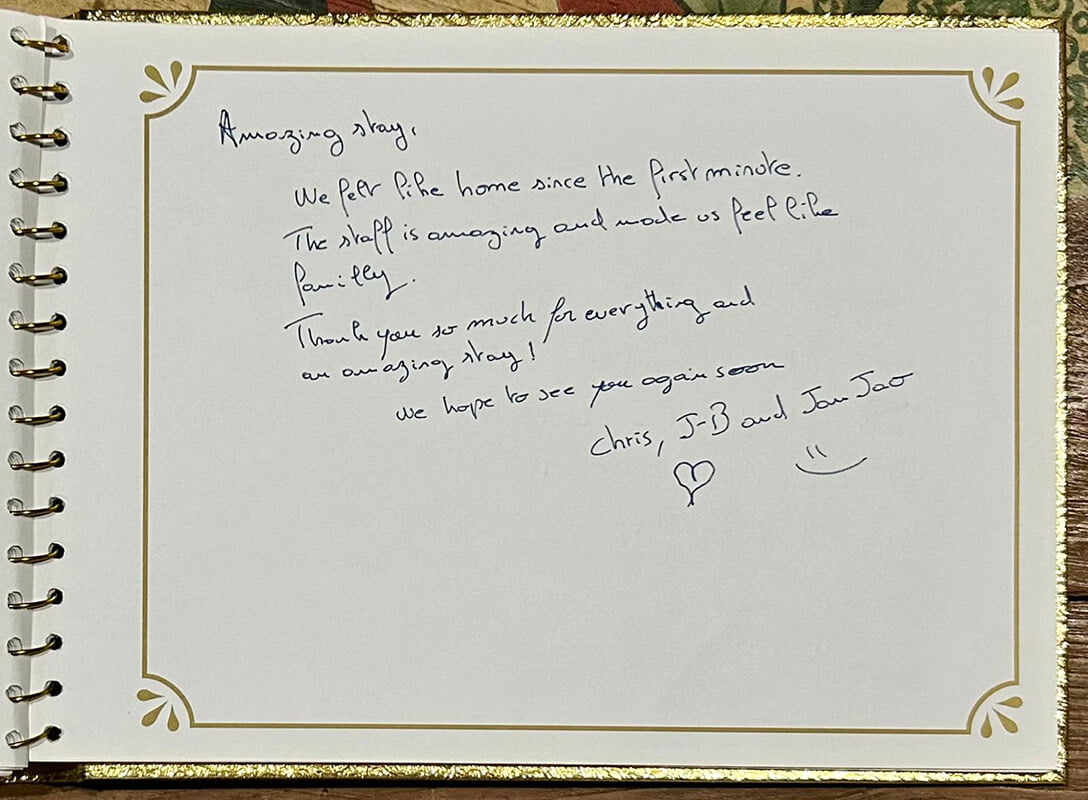 Amazing stay,
We felt like home since the first minute.
The staff is amazing and made us feel like
familly.
Thank you so much for everything and
an amazing stay!
We hope to see you again soon
Chris, J-B and Jan Jao